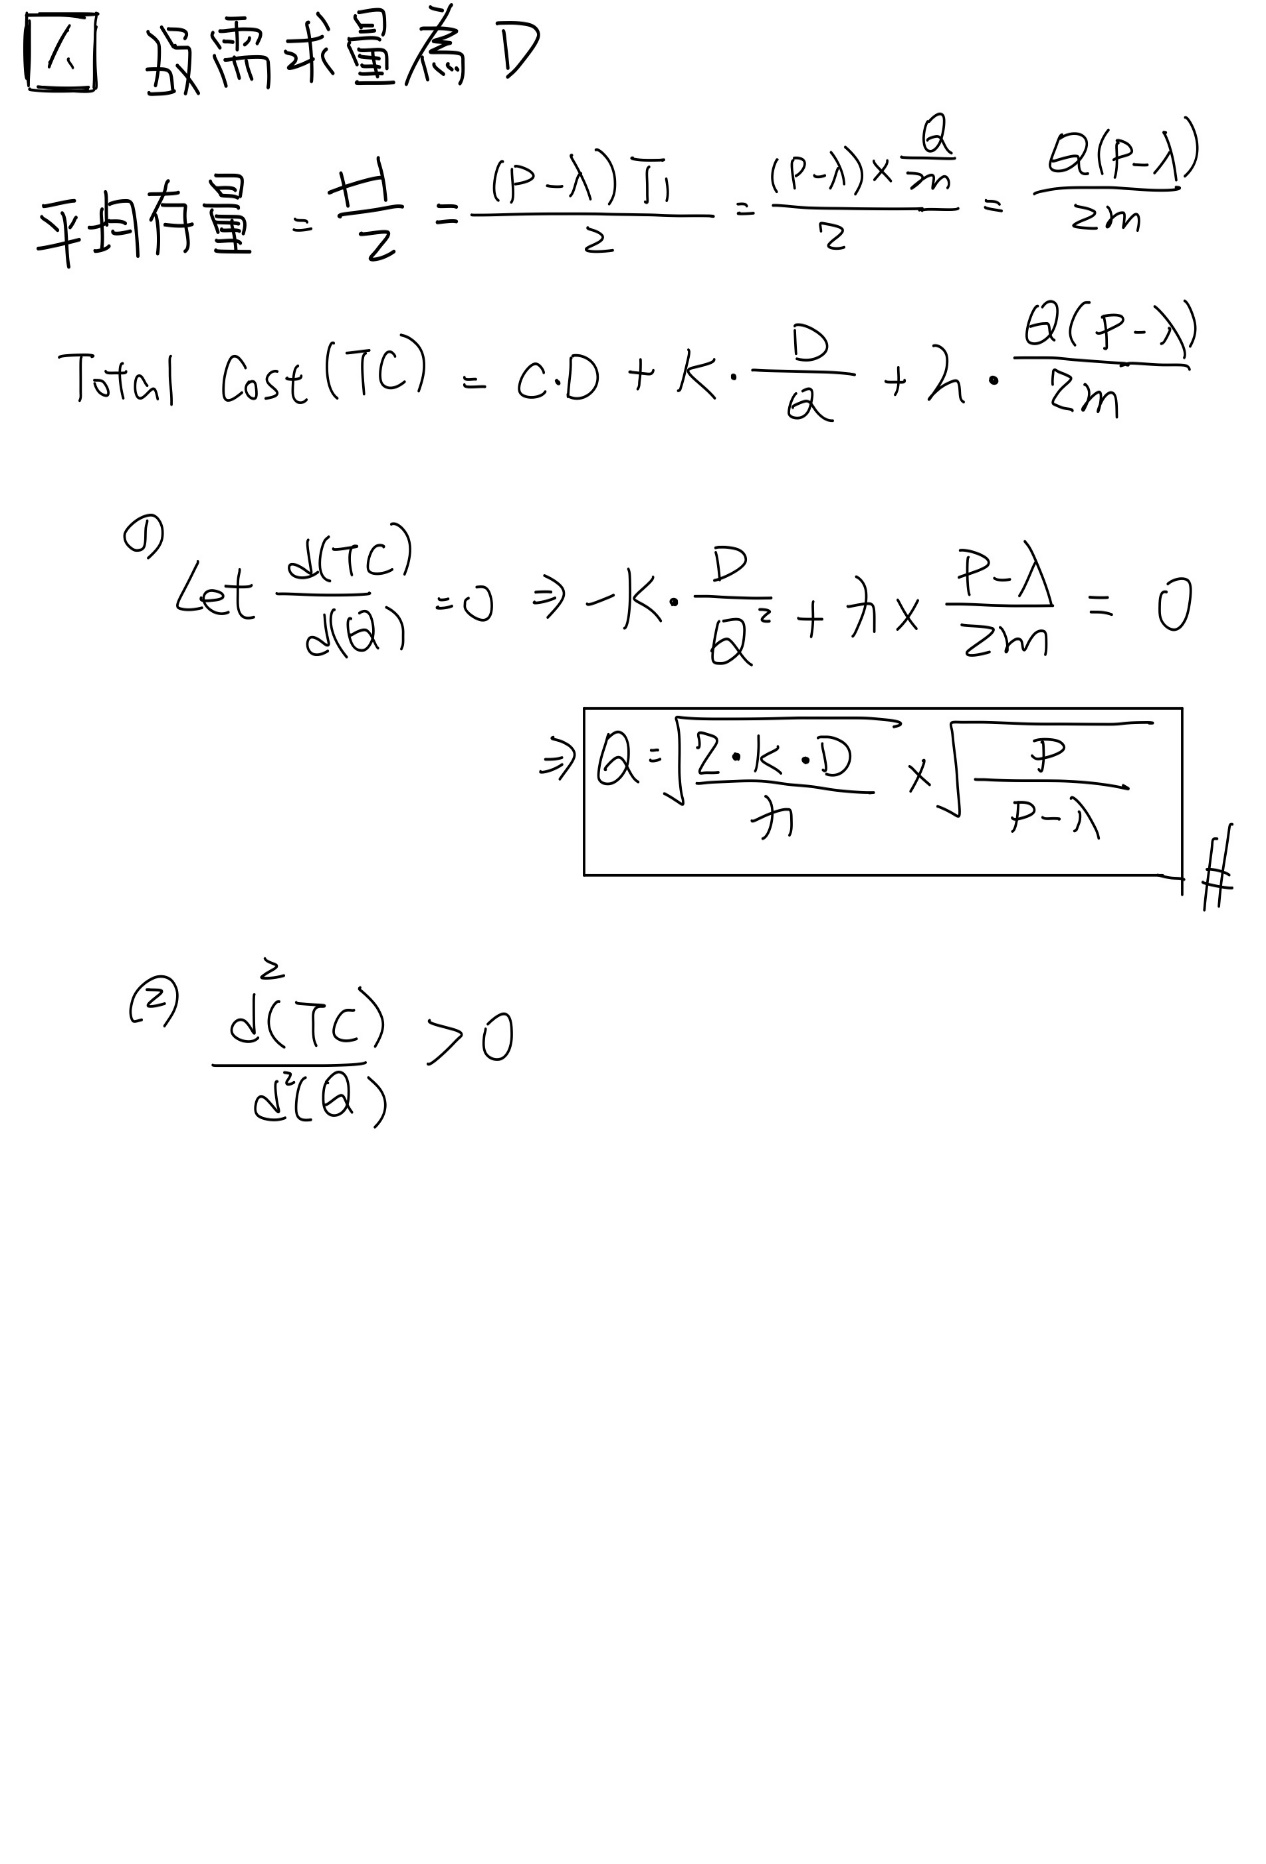 1. 設需求量為 D
平均存量 = H/2 = (P-λ)T₁/2 = (P-λ)×(Q/m)/2 = Q(P-λ)/2m
Total Cost (TC) = C·D + K·D/Q + h·Q(P-λ)/2m
① Let d(TC)/d(Q) = 0 ⇒ -K·D/Q² + h×(P-λ)/2m = 0
⇒ Q = √(2·K·D/h) × √(P/(P-λ)) #
② d²(TC)/d²(Q) > 0